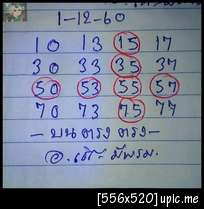 1-12-60
10 13 15 17
30 33 35 37
50 53 55 57
70 73 75 77
- บน ตรง ตรง -
[556x520]upic.me